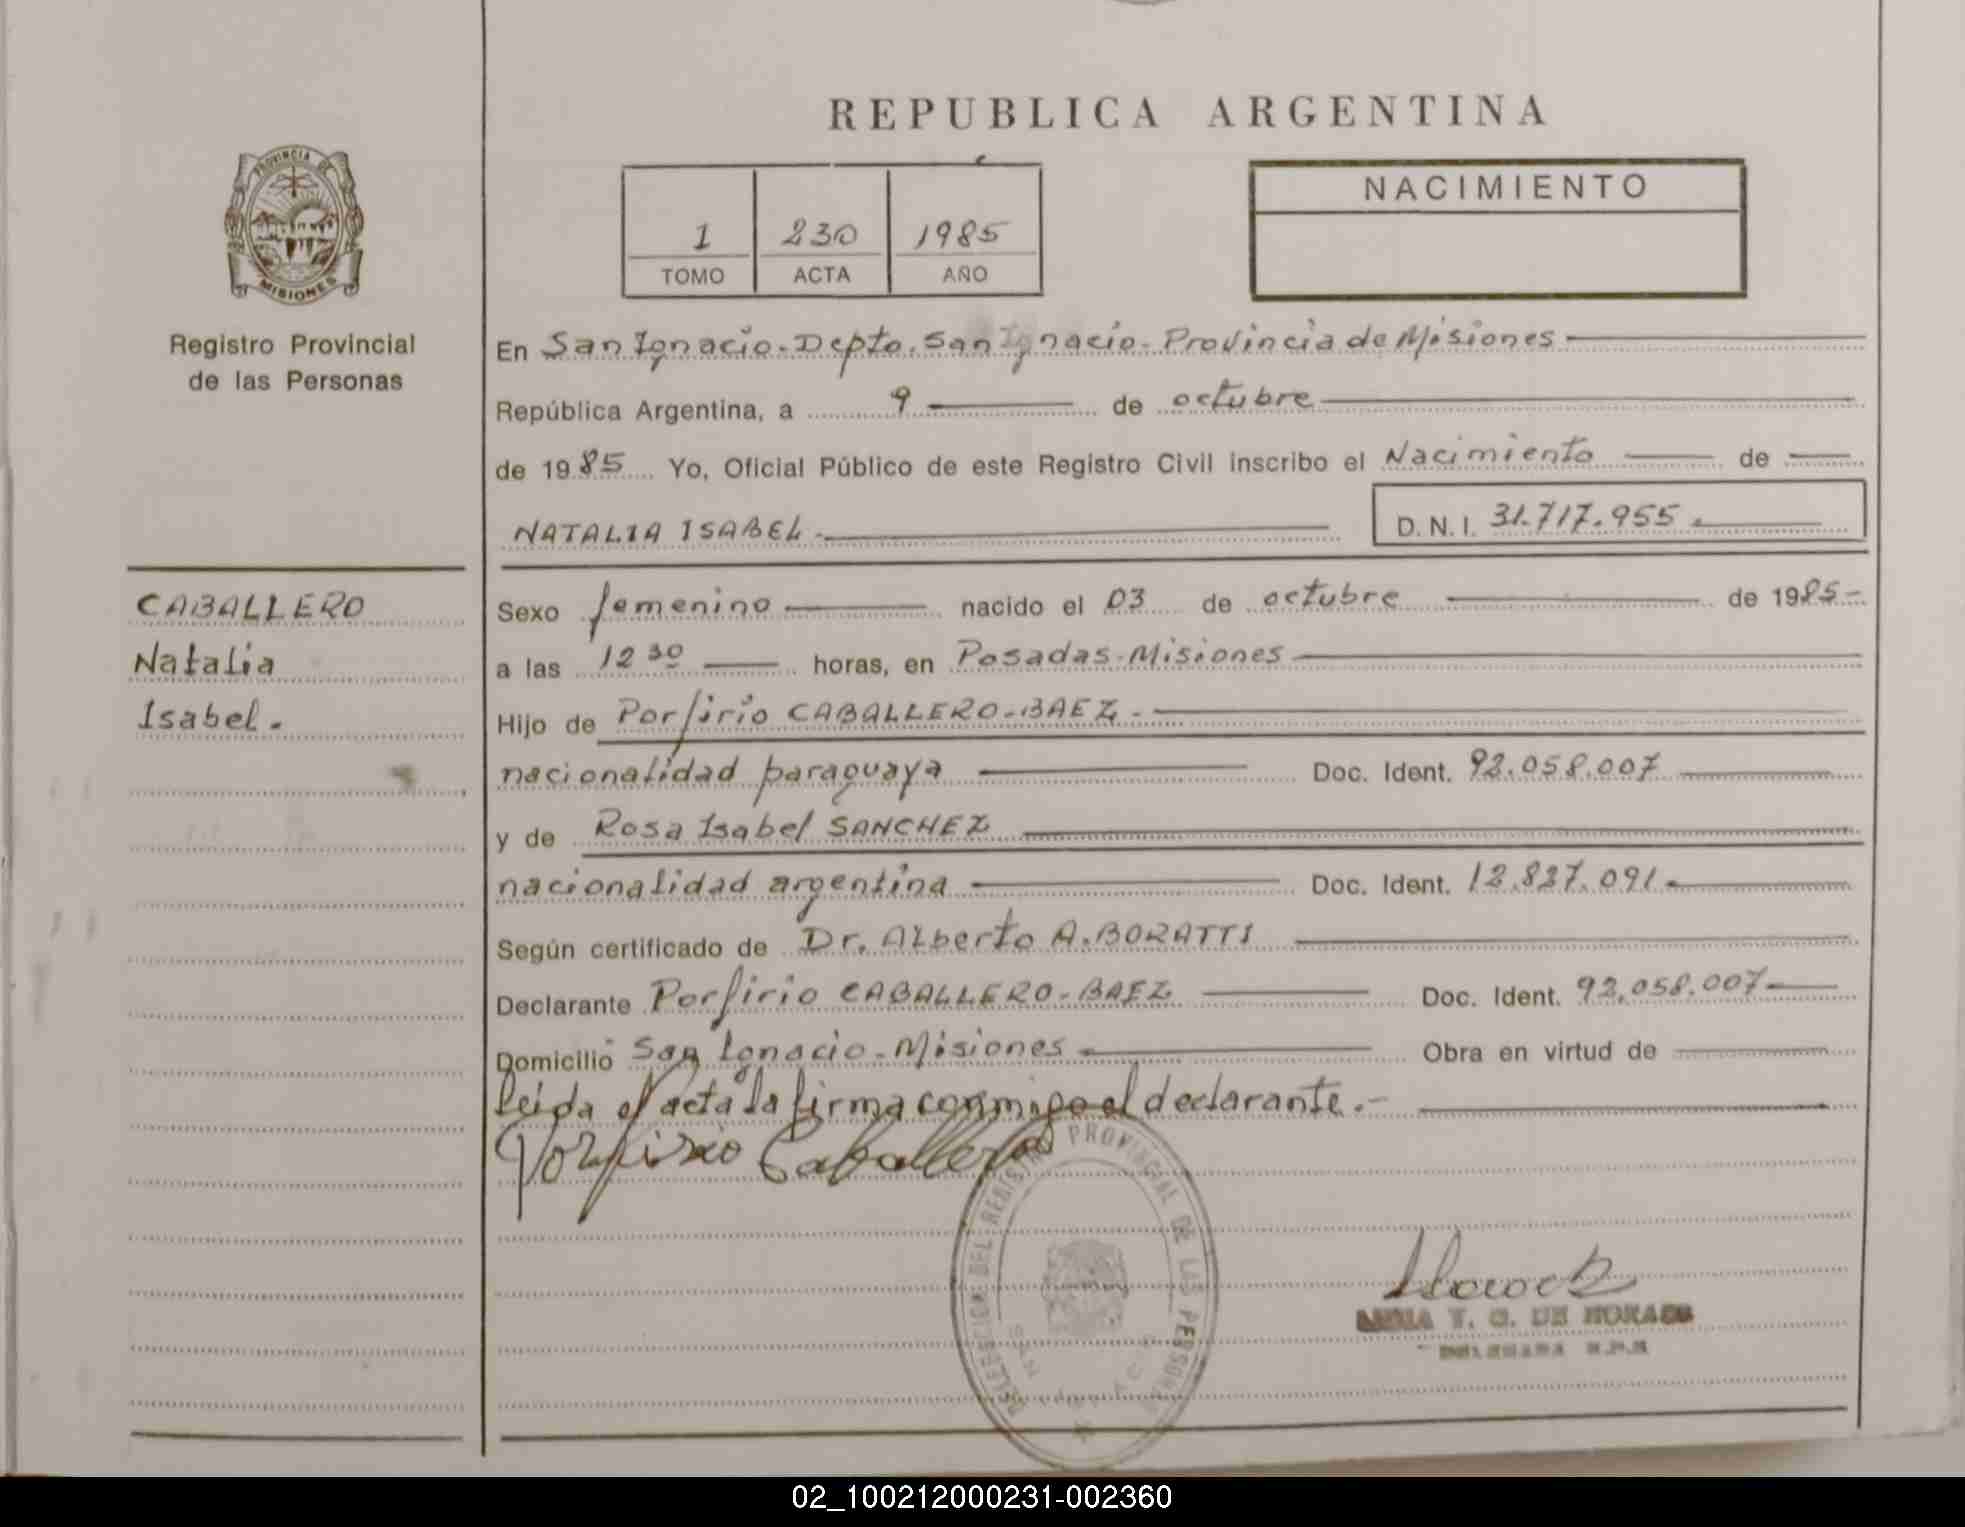 REPUBLICA ARGENTINA
PROVINCIA DE
MISIONES
Registro Provincial
de las Personas
1 230 1985
TOMO ACTA AÑO
NACIMIENTO
En San Ignacio. Depto. San Ignacio. Provincia de Misiones
República Argentina, a 9 de octubre
de 1985 Yo, Oficial Público de este Registro Civil inscribo el Nacimiento de
NATALIA ISABEL.
D.N.I. 31.717.955.
CABALLERO
Natalia
Isabel.
Sexo femenino nacido el 03 de octubre de 1985-
a las 12 30 horas, en Posadas-Misiones
Hijo de Porfirio CABALLERO-BAEZ.
nacionalidad paraguaya Doc. Ident. 92.058.007
y de Rosa Isabel SANCHEZ
nacionalidad argentina Doc. Ident. 12.827.091.
Según certificado de Dr. Alberto A. BORATTI
Declarante Porfirio CABALLERO-BAEZ Doc. Ident. 92.058.007
Domicilio San Ignacio-Misiones Obra en virtud de
leida el acta la firma conmigo el declarante.-
Porfirio Caballero
DELEGACION DEL REGISTRO PROVINCIAL DE LAS PERSONAS
T. G. DE
02_100212000231-002360